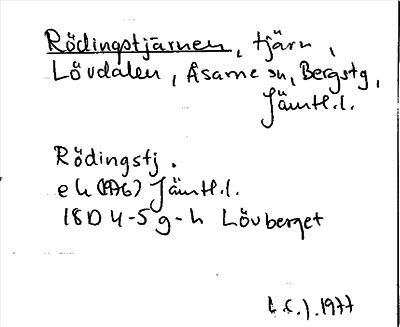 Rödingstjärnen, tjärn,
Lövdalen, Åsarne sn, Bergs tg,
Jämtl.l.
Rödingstj.
ek (1976) Jämtl.l.
18D 4-5 g-h Lövberget
1977